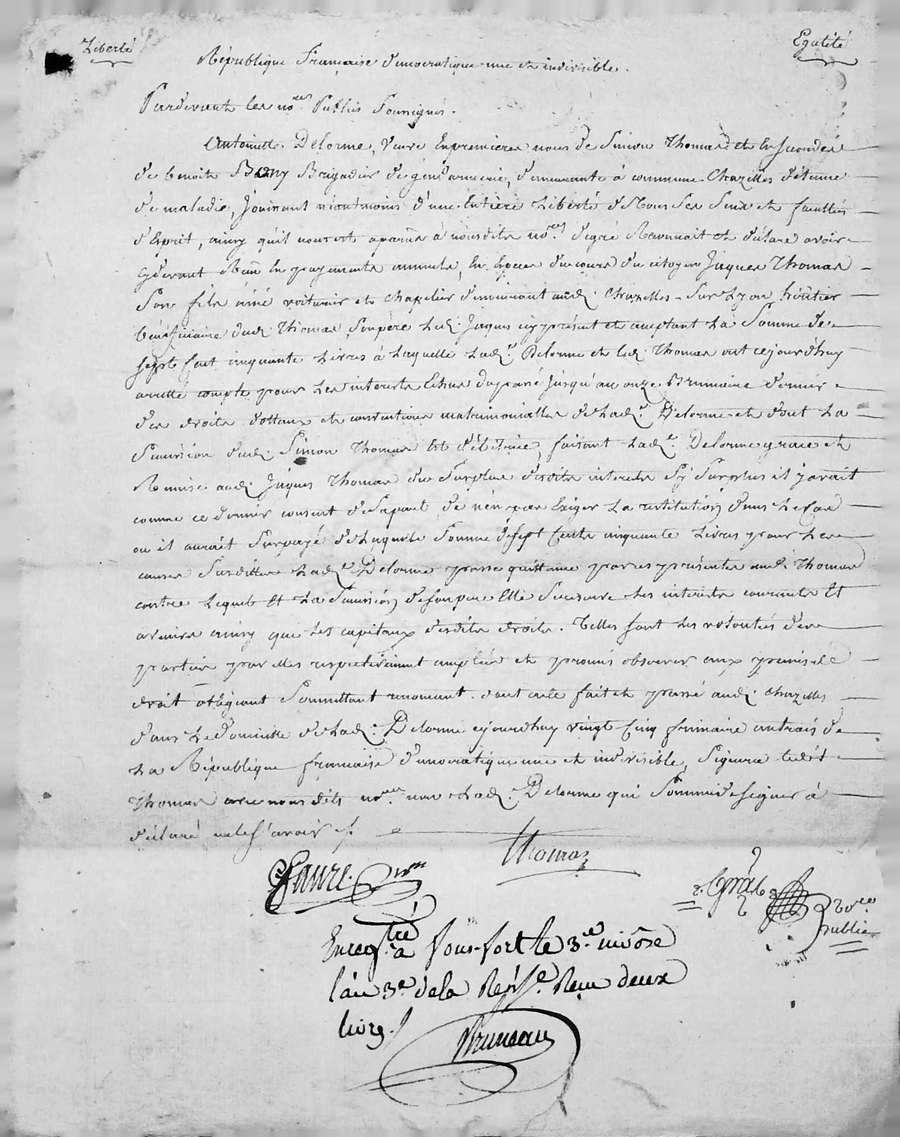 Liberté
Egalité
République Française démocratique une et indivisible.
Pardevant les no.res Publis Soussignés.
Antoinette Delorme, veuve Enpremieres nous de Simon Thomas et En secondes
de benoit Brigadier de gendarmerie, demeurante à commune Chazelles détenue
de maladie, Jouissant néantmoins d'une Entière Liberté Ses Sens et facultés
d'Esprit, ainsy qu'il nous est aparus à nousdits no.res degré Reconnait et déclare avoir
cydevant Reçu En payements annuels, En Espèces du cours du citoyen Jaques Thomas
Son fils ainé voiturier et chapelier demeurant aud. Chazelles-Sur-Lyon héritier
bénéficiaire dud. Thomas Sonpère led. Jaques cy présent et aceptant La Somme de
Sept Cent cinquante Livres à Laquelle Lad.e Delorme et led. Thomas ont cejourdhuy
arretté compte pour Les interests Echus dupassé Jusqu'au onze Brumaire dernier
des droits dottaux et conventions matrimonialles de Lad.e Delorme et dont La
Succession dud. Simon Thomas Est débitrice, faisant Lad.e Delorme grace et
Remise aud. Jaques Thomas du Surplus desdits interests Sy Surplus il y avait
comme ce dernier consent de Sapart de n'en pas Exiger La restitution dans Le Cas
ou il aurait Surpayé de Laquelle Somme de Sept Cents cinquante Livres pour Les
causes Susdittes Lad.e Delorme passe quittance par ces présentes aud. Thomas
contre Lequel Et La Succession de Sonpere Elle Se reserve Les interests courants Et
avenirs ainsy que Les capitaux desdits droits. Telles Sont Les volontés des
parties par Elles respectivement aceptées et promis observer aux peines de
droit obligeant Soumettant renonçant. dont acte fait et passé aud. Chazelles
dans Le domicille de Lad.e Delorme cejourdhuy vingt Cinq frimaire an trois de
La République française démocratique une et indivisible, Signera led.t
Thomas avec nous dits no.res non Lad.e Delorme qui Sommée de Signer à
déclaré ne le Savoir ./.
Thomas
Faure. no.re
no.res
Publics
Enregtré à Sous-fort le 3.e nivôse
l'an 3.e de la Rep.e Reçu deux
livres
Bruneau